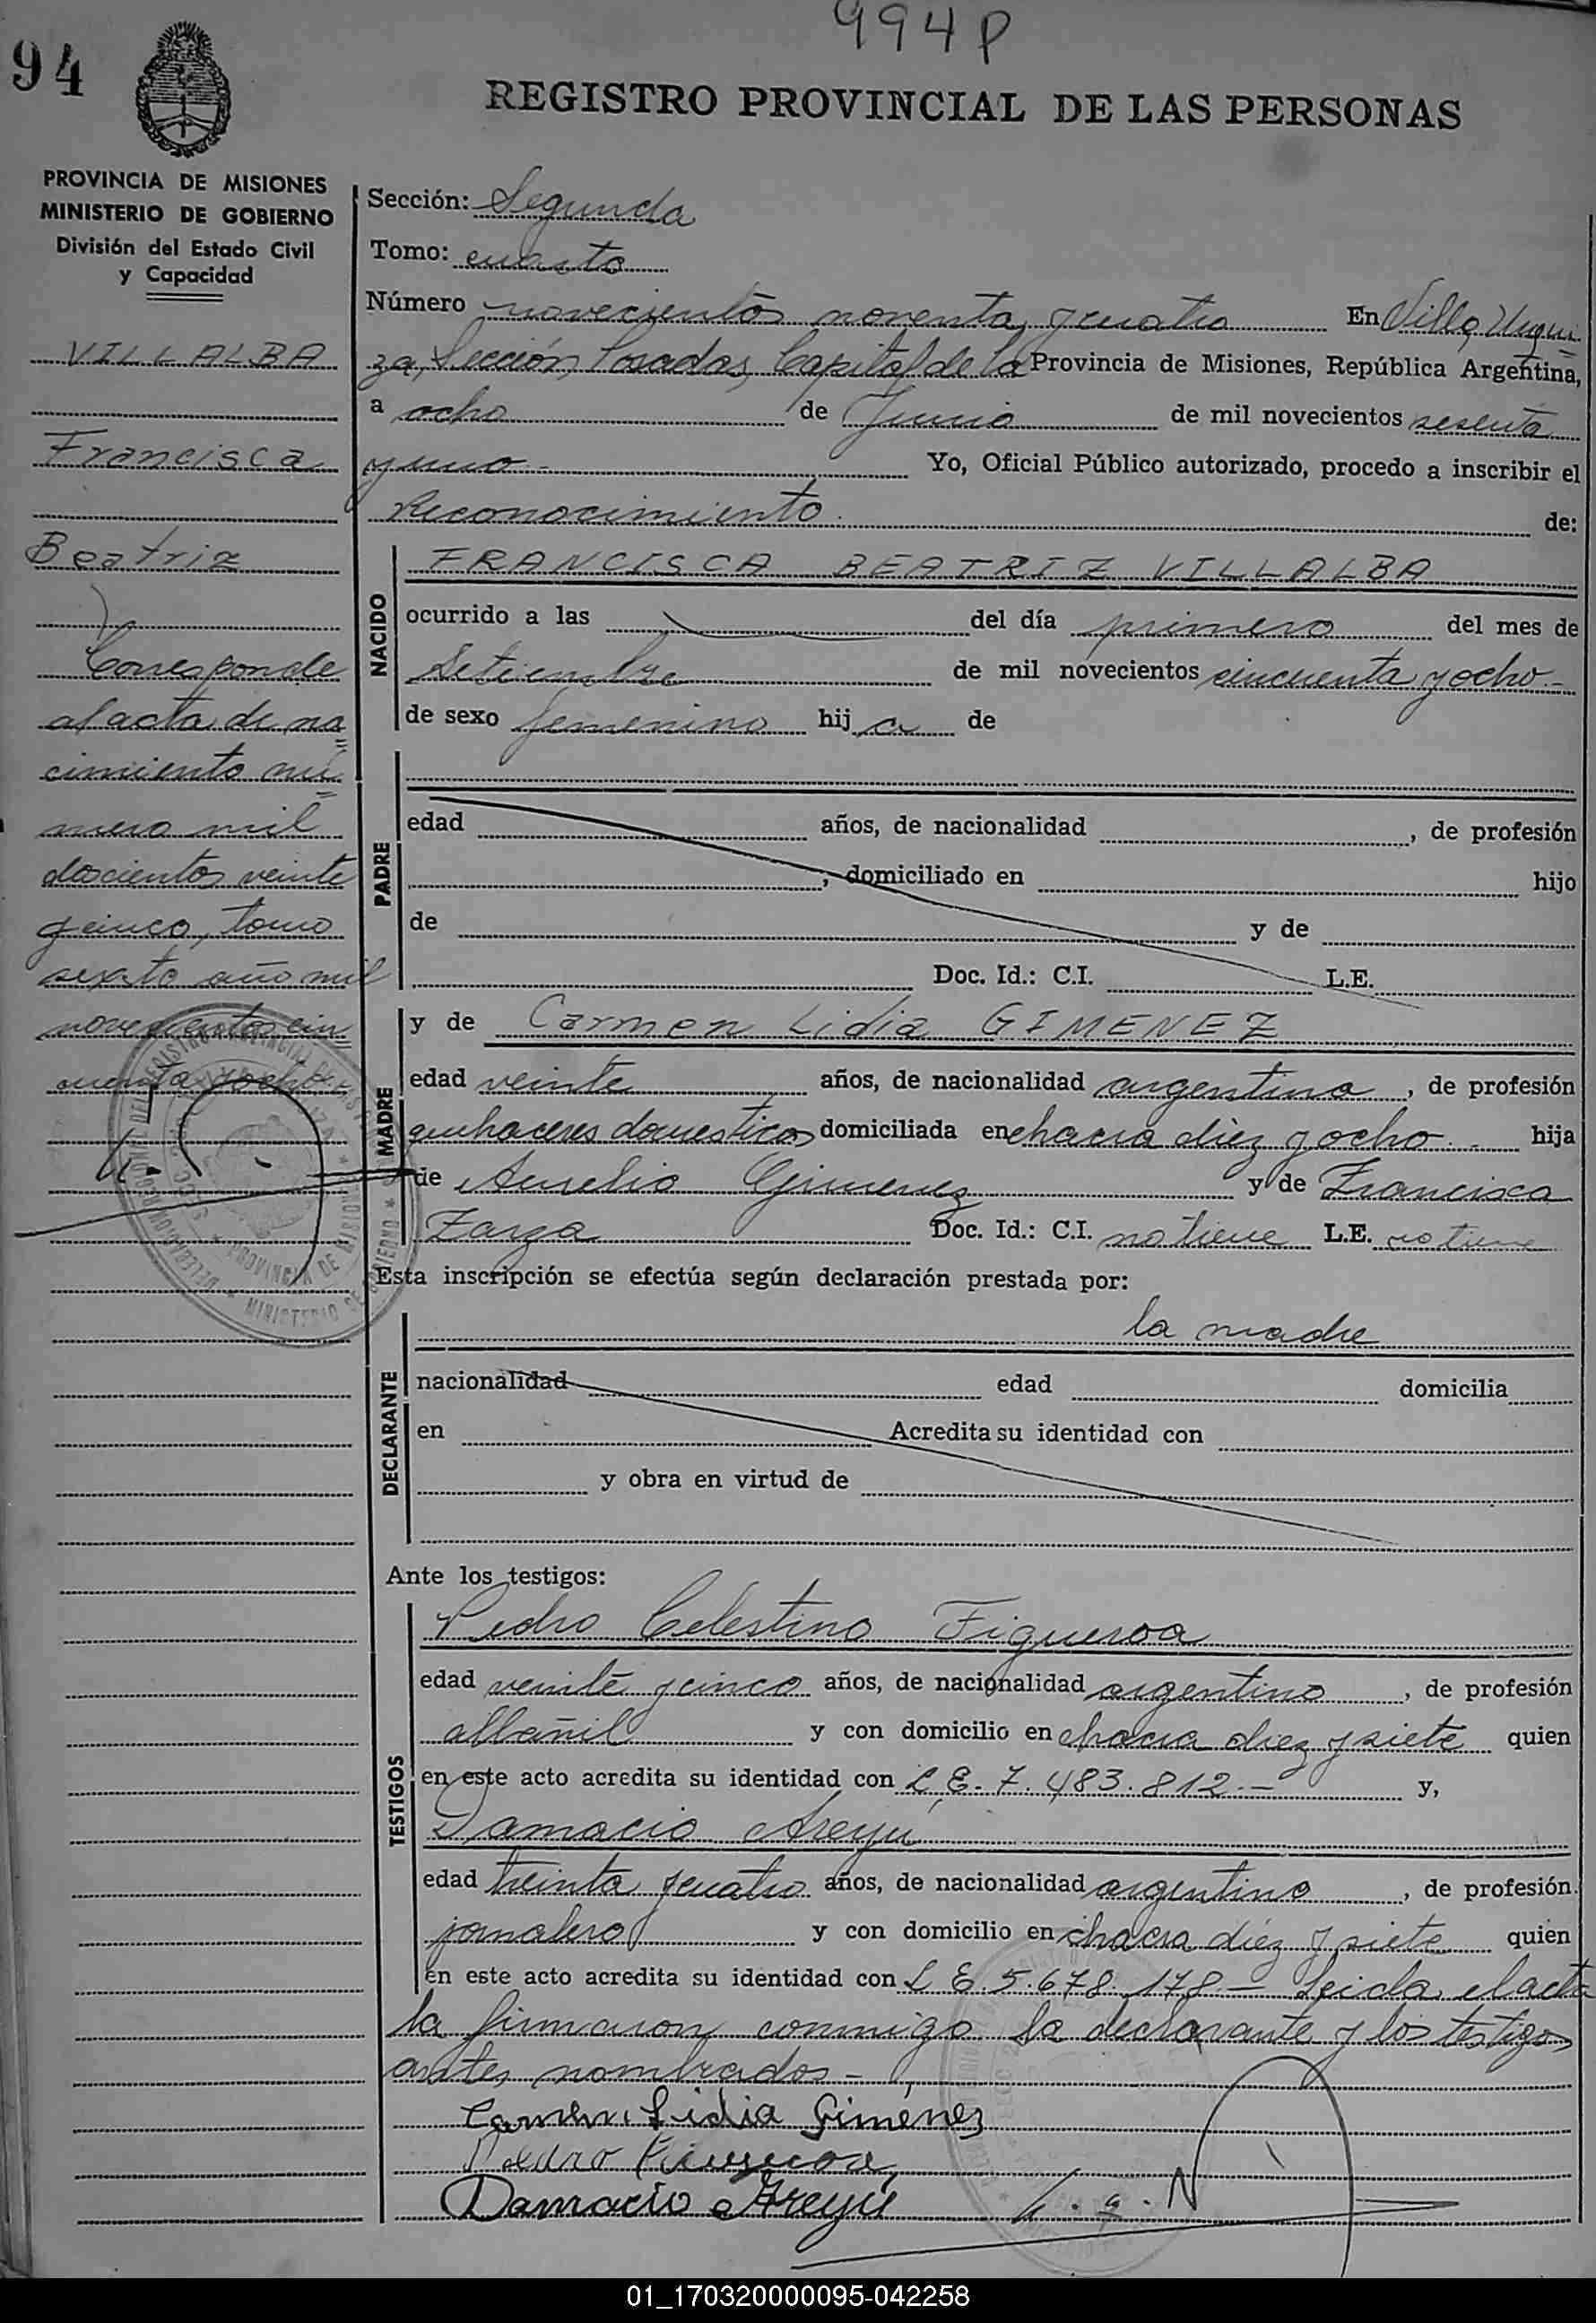 994 P
94
REGISTRO PROVINCIAL DE LAS PERSONAS
PROVINCIA DE MISIONES
MINISTERIO DE GOBIERNO
División del Estado Civil
y Capacidad
VILLALBA
Francisca
Beatriz
Corresponde
al acta de na=
cimiento nú=
mero mil
doscientos veinte
y cinco, tomo
sexto año mil
novecientos cin
cuenta y ocho
Sección: Segunda
Tomo: cuarto
Número novecientos noventa y cuatro En Villa Urqui=
za, Sección Posadas, Capital de la Provincia de Misiones, República Argentina,
a ocho de Junio de mil novecientos sesenta
y uno.- Yo, Oficial Público autorizado, procedo a inscribir el
Reconocimiento de:
NACIDO
FRANCISCA BEATRIZ VILLALBA
ocurrido a las del día primero del mes de
Setiembre de mil novecientos cincuenta y ocho.-
de sexo femenino hij a de
PADRE
edad años, de nacionalidad , de profesión
, domiciliado en hijo
de y de
Doc. Id.: C.I. L.E.
MADRE
y de Carmen Lidia GIMENEZ
edad veinte años, de nacionalidad argentina , de profesión
quehaceres domesticos domiciliada en chacra diez y ocho.. hija
de Aurelio Gimenez y de Francisca
Zarza Doc. Id.: C.I. no tiene L.E. no tiene
Esta inscripción se efectúa según declaración prestada por:
la madre
DECLARANTE
nacionalidad edad domicilia
en Acredita su identidad con
y obra en virtud de
Ante los testigos:
TESTIGOS
Pedro Celestino Figueroa
edad veinte y cinco años, de nacionalidad argentino , de profesión
albañil y con domicilio en chacra diez y siete quien
en este acto acredita su identidad con L.E. 7.483.812.- y,
Damacio Areyú
edad treinta y cuatro años, de nacionalidad argentino , de profesión
jornalero y con domicilio en chacra diez y siete quien
en este acto acredita su identidad con L E. 5.678.178.- Leida el acta
la firmaron conmigo la declarante y los testigos
antes nombrados.-
Carmen Lidia Gimenez
Pedro Figueroa
Damacio Areyú
01_170320000095-042258